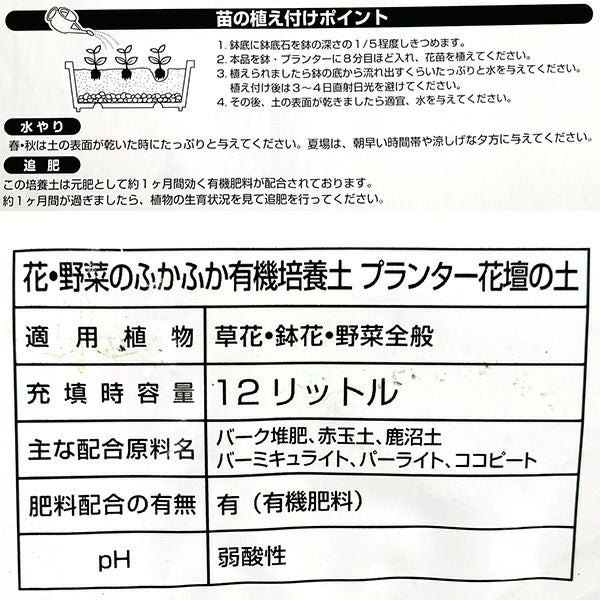 苗の植え付けポイント
1. 鉢底に鉢底石を鉢の深さの1/5程度しきつめます。
2. 本品を鉢・プランターに8分目ほど入れ、花苗を植えてください。
3. 植えられましたら鉢の底から流れ出すくらいたっぷりと水を与えてください。
植え付け後は3〜4日直射日光を避けてください。
4. その後、土の表面が乾きましたら適宜、水を与えてください。
水やり
春・秋は土の表面が乾いた時にたっぷりと与えてください。夏場は、朝早い時間帯や涼しげな夕方に与えてください。
追 肥
この培養土は元肥として約1ヶ月間効く有機肥料が配合されております。
約1ヶ月間が過ぎましたら、植物の生育状況を見て追肥を行ってください。
花・野菜のふかふか有機培養土 プランター花壇の土
適用植物 草花・鉢花・野菜全般
充填時容量 12リットル
主な配合原料名 バーク堆肥、赤玉土、鹿沼土
バーミキュライト、パーライト、ココピート
肥料配合の有無 有（有機肥料）
pH 弱酸性